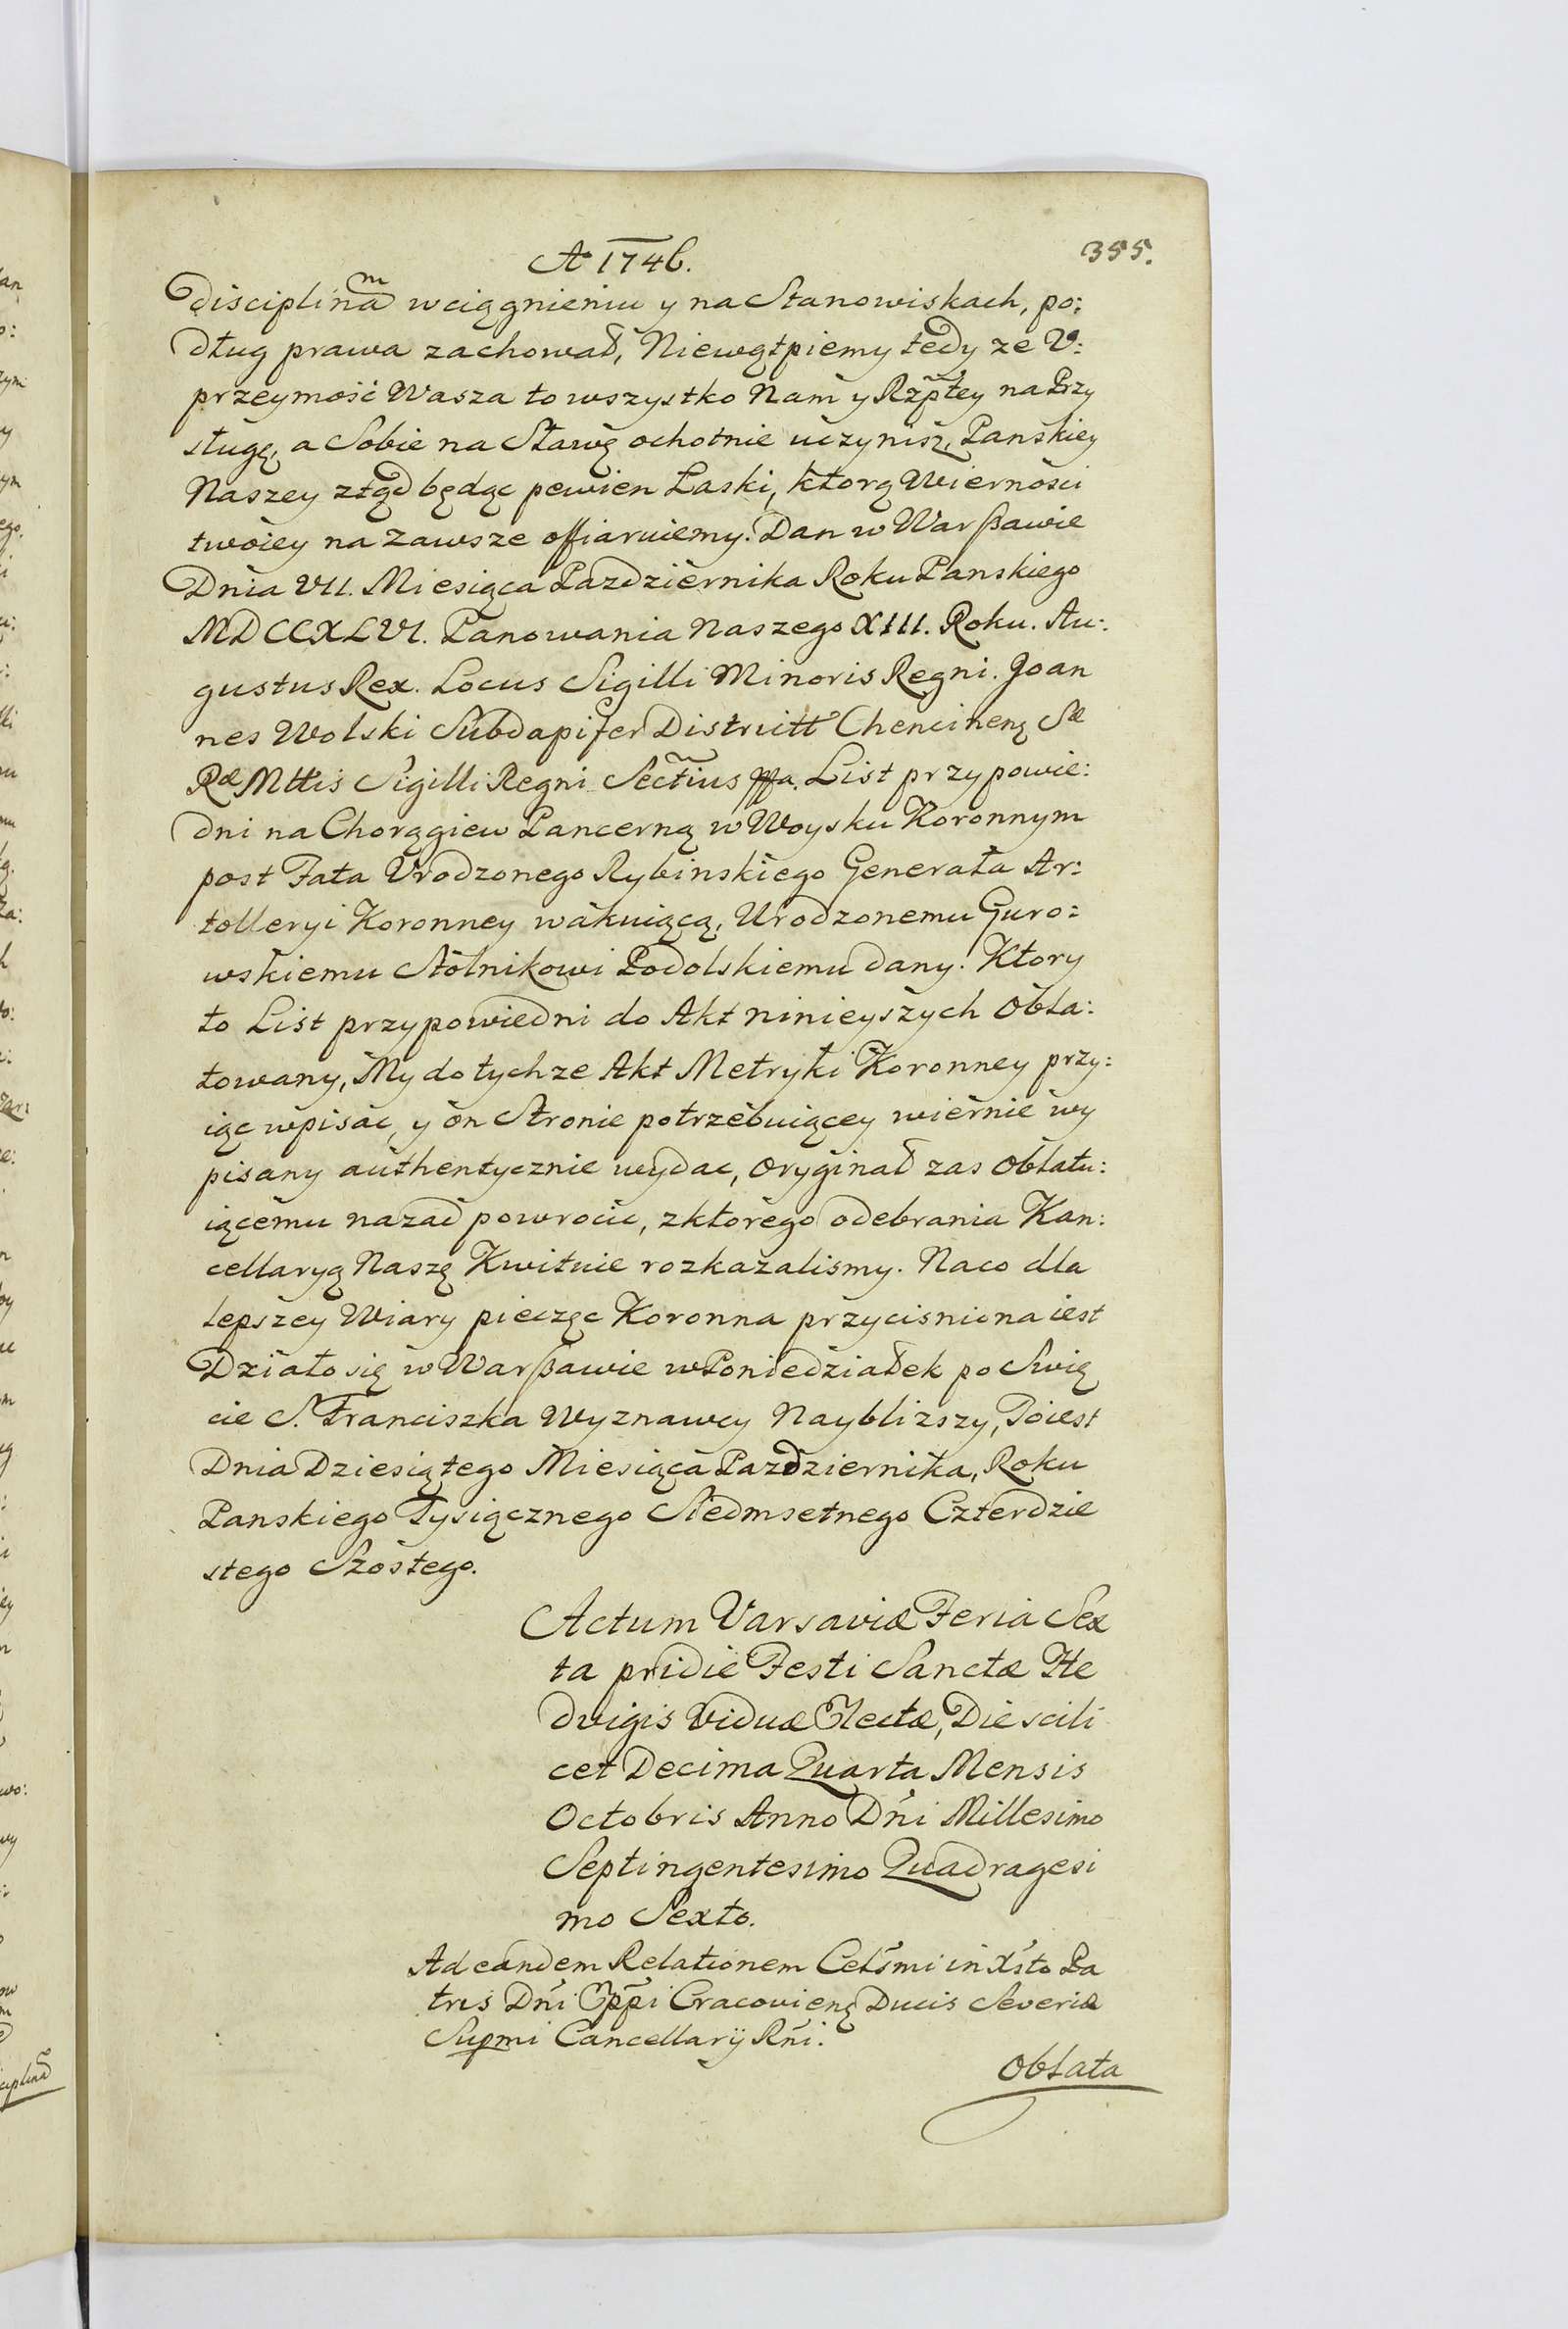 A° 1746.
355.
Disciplinam wciągnieniu y na Stanowiskach, po:
dług prawa zachował, Niewątpiemy tedy ze V:
przeymość Wasza to wszystko Nam y Rzp̃tey na Przy
sługę, a Sobie na Sławę ochotnie uczynisz, Panskiey
Naszey ztąd będąc pewien Łaski, ktorą Wierności
twoiey na zawsze offiaruiemy. Dan w Warßawie
Dnia VII. Miesiąca Pazdziernika Roku Panskiego
MDCCXLVI. Panowania Naszego XIII. Roku. Au:
gustus Rex. Locus Sigilli Minoris Regni. Joan
nes Wolski Subdapifer Districtt Chencinenς Sæ
Ræ Mttis Sigilli Regni Sectius mpa. List przypowie:
dni na Chorągiew Pancerną w Woysku Koronnym
post Fata Vrodzonego Rybinskiego Generała Ar:
tolleryi Koronney wakuiącą, Urodzonemu Guro:
wskiemu Stolnikowi Podolskiemu dany. Ktory
to List przypowiedni do Akt ninieyszych obla:
towany, My do tychze Akt Metryki Koronney przy:
iąc wpisac, y on Stronie potrzebuiącey wiernie wy
pisany authentycznie wydac, oryginał zas oblatu:
iącemu nazad powrocic, zktorego odebrania Kan:
cellaryą Naszę Kwituie rozkazalismy. Naco dla
lepszey Wiary pieczęc Koronna przycisniona iest
Działo się w Warßawie w Poniedziałek po Swię
cie S. Franciszka Wyznawcy Nayblizszy, To iest
Dnia Dziesiątego Miesiąca Pazdziernika, Roku
Panskiego Tysiącznego Siedmsetnego Czterdzie
stego Szostego.
Actum Varsaviæ Feria Sex
ta pridie Festi Sanctæ He
dvigis Viduæ Electæ, Die scili
cet Decima Quarta Mensis
Octobris Anno Dńi Millesimo
Septingentesimo Quadragesi
mo Sexto.
Ad eandem Relationem Celśmi in Xśto Pa
tris Dńi Eppi Cracovienς Ducis Severiæ
Supmi Cancellarÿ Rńi.
Oblata